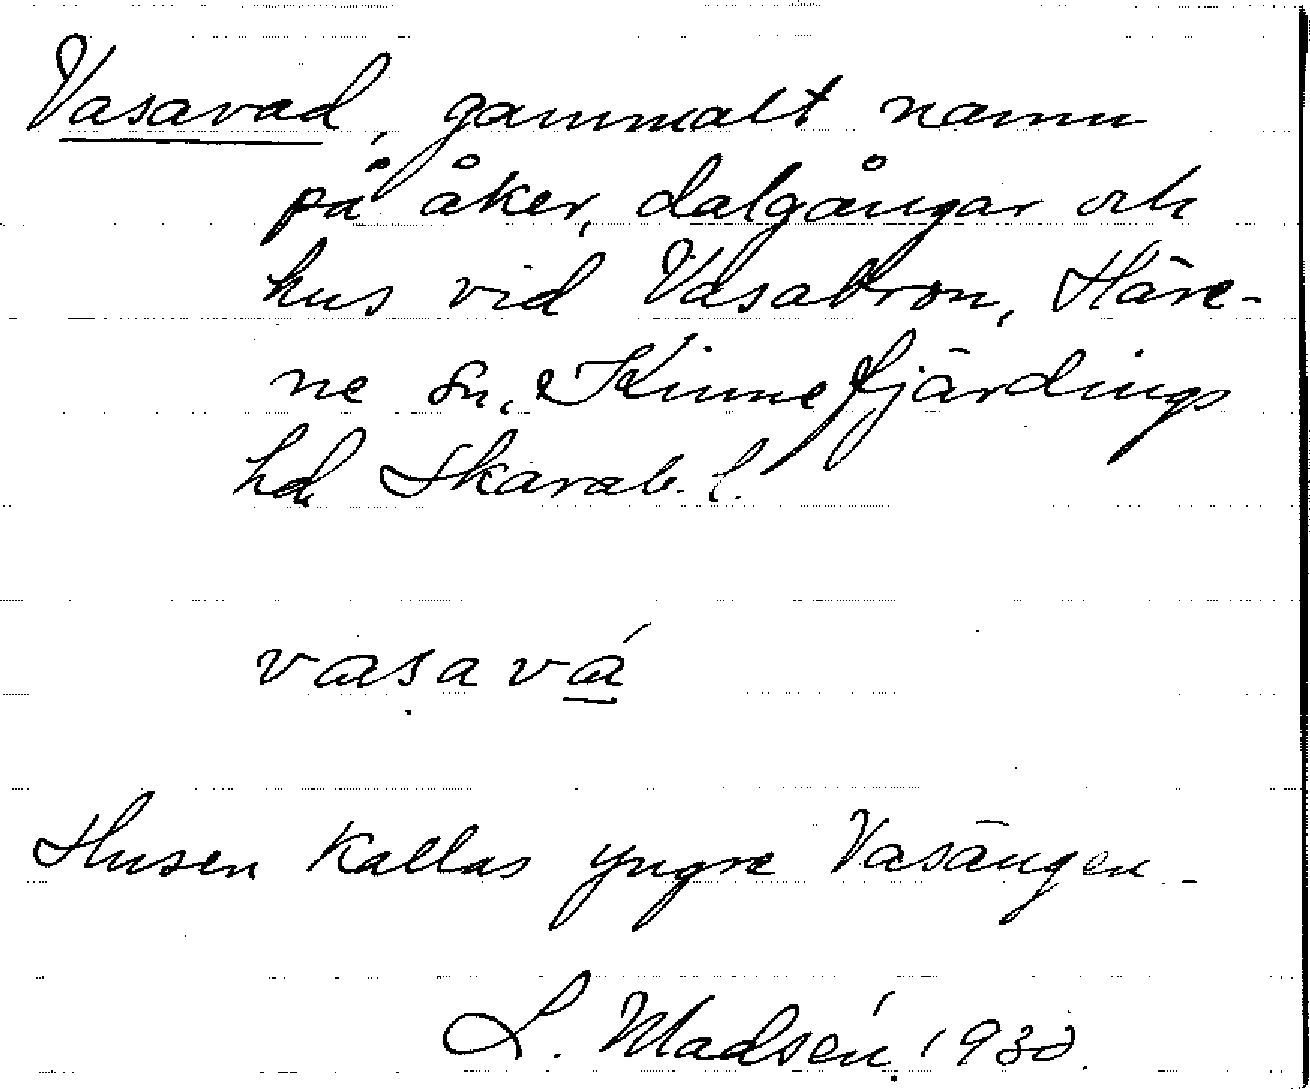 Vasavad, gammalt namn
på åker, dalgångar och
hus vid Vasabron, Häre-
ne sn, Kinnefjärdings
hd Skarab. l.
vasavá
Husen kallas yngre Vasängen.
L. Madsén 1930.